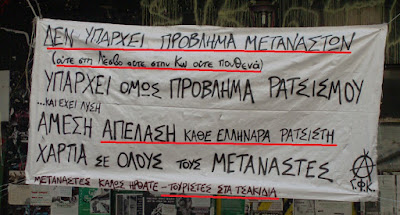 ΔΕΝ ΥΠΑΡΧΕΙ ΠΡΟΒΛΗΜΑ ΜΕΤΑΝΑΣΤΩΝ
(ούτε στη Λέσβο ούτε στην Κω ούτε πουθενά)
ΥΠΑΡΧΕΙ ΟΜΩΣ ΠΡΟΒΛΗΜΑ ΡΑΤΣΙΣΜΟΥ
...ΚΑΙ ΕΧΕΙ ΛΥΣΗ
ΑΜΕΣΗ ΑΠΕΛΑΣΗ ΚΑΘΕ ΕΛΛΗΝΑΡΑ ΡΑΤΣΙΣΤΗ
ΧΑΡΤΙΑ ΣΕ ΟΛΟΥΣ ΤΟΥΣ ΜΕΤΑΝΑΣΤΕΣ
ΜΕΤΑΝΑΣΤΕΣ ΚΑΛΩΣ ΗΡΘΑΤΕ - ΤΟΥΡΙΣΤΕΣ ΣΤΑ ΤΣΑΚΙΔΙΑ
Γ.Φ.Κ.